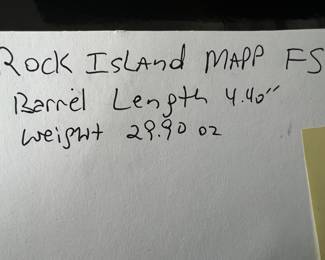 Rock Island MAPP FS
Barrel Length 4.40"
weight 29.90 oz